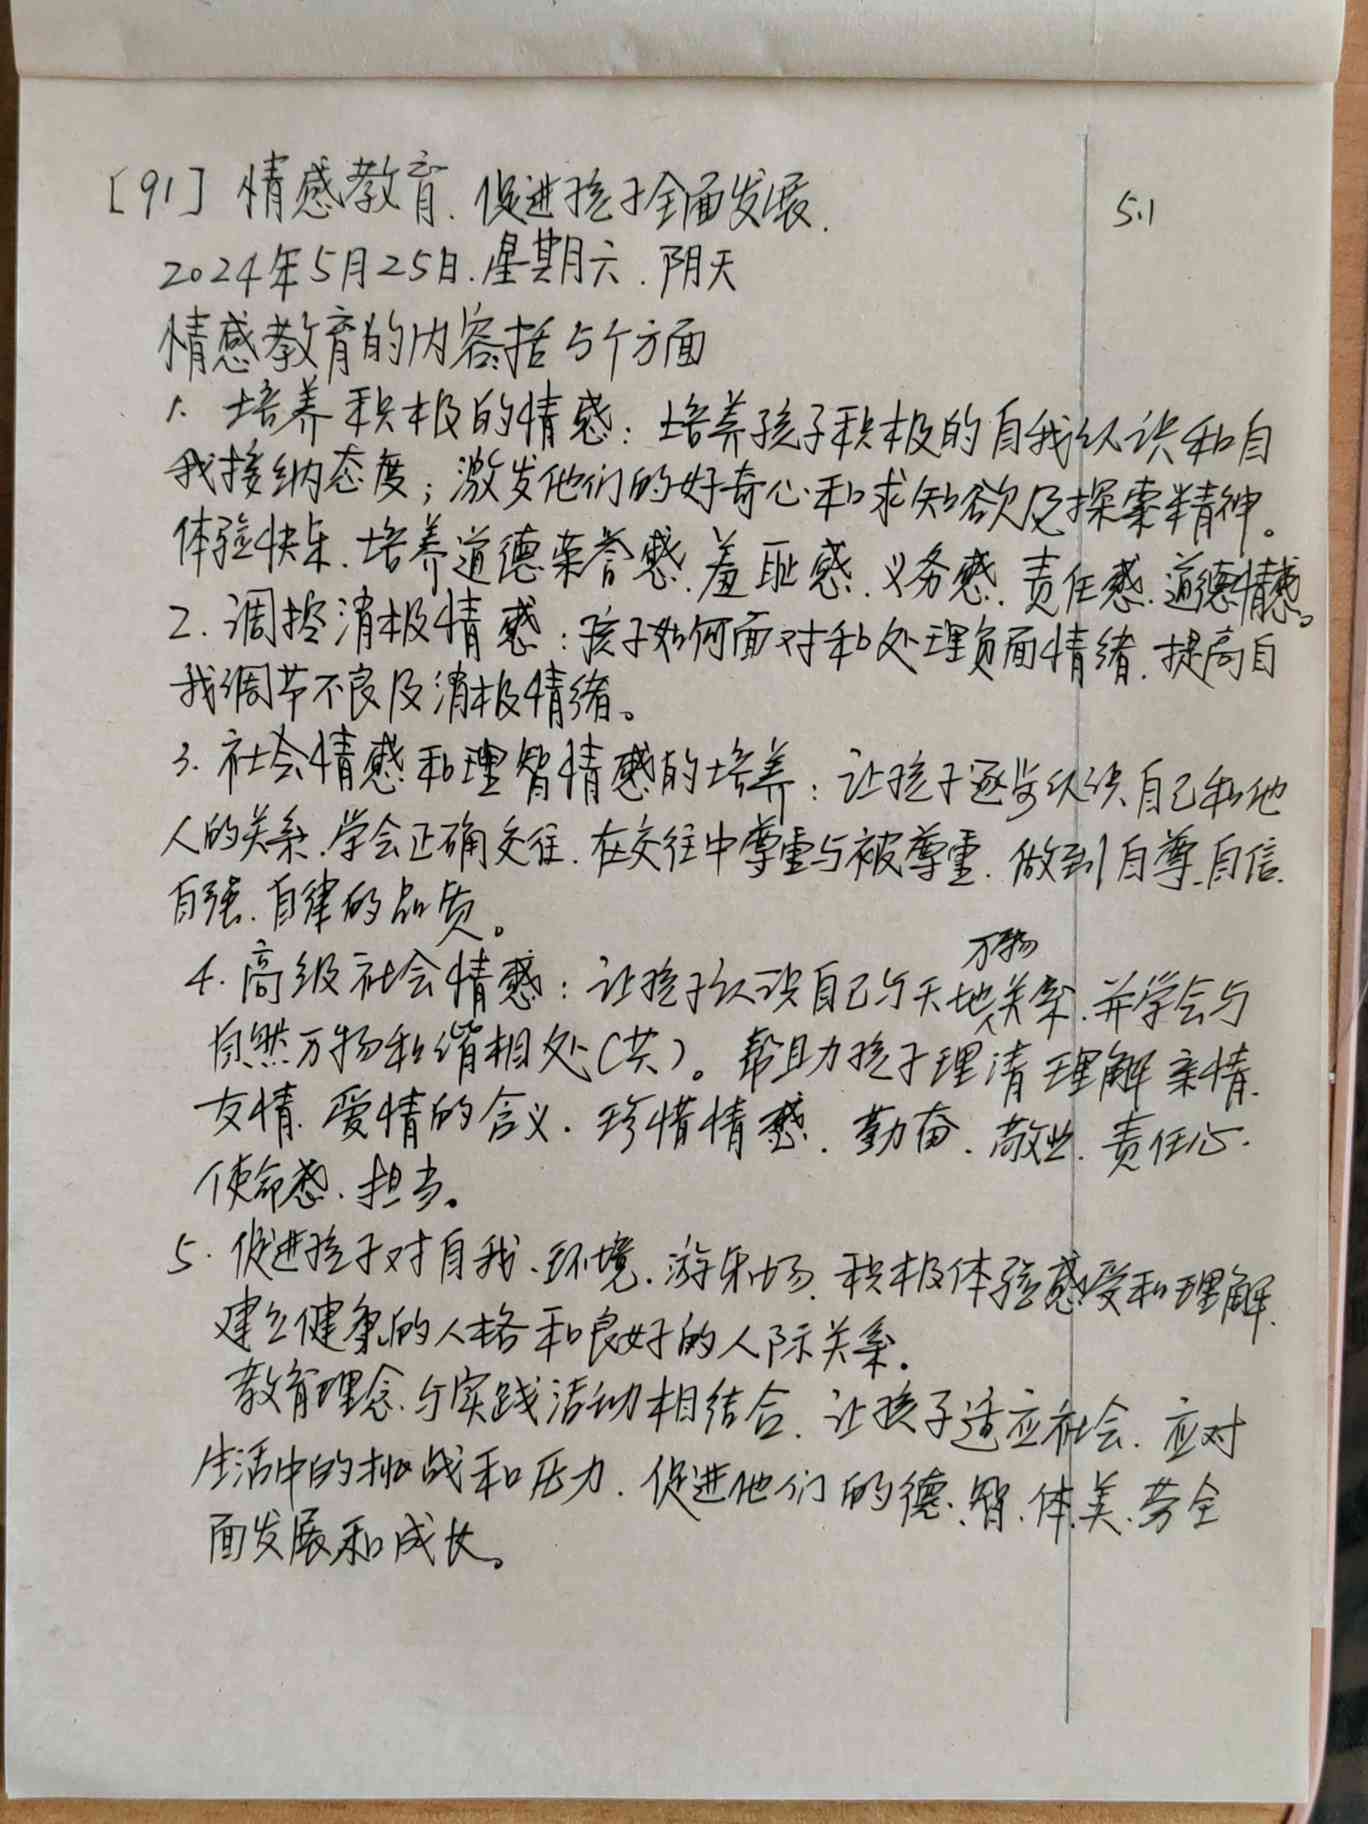 [91] 情感教育、促进孩子全面发展.
5.1
2024年5月25日.星期六.阴天
情感教育的内容括5个方面
1. 培养积极的情感：培养孩子积极的自我认识和自
我接纳态度；激发他们的好奇心和求知欲及探索精神。
体验快乐、培养道德荣誉感、羞耻感、义务感、责任感、道德情感。
2. 调控消极情感：孩子如何面对和处理负面情绪、提高自
我调节不良及消极情绪。
3. 社会情感和理智情感的培养：让孩子逐步认识自己和他
人的关系、学会正确交往、在交往中尊重与被尊重、做到自尊、自信、
自强、自律的品质。
4. 高级社会情感：让孩子认识自己与天地万物关系、并学会与
自然万物和谐相处(共)。帮助孩子理清理解亲情、
友情、爱情的含义、珍惜情感、勤奋、敬业、责任心、
使命感、担当。
5. 促进孩子对自我、环境、游乐场、积极体验感受和理解、
建立健康的人格和良好的人际关系.
教育理念与实践活动相结合、让孩子适应社会、应对
生活中的挑战和压力、促进他们的德、智、体、美、劳全
面发展和成长。